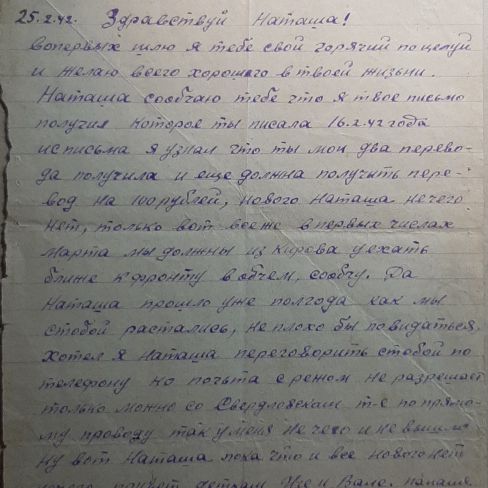 25.2.42. Здравствуй Наташа!
вопервых шлю я тебе свой горячий поцелуй
и желаю всего хорошего в твоей жизни.
Наташа сообчаю тебе что я твое письмо
получил которое ты писала 16.2.42 года
ис письма я узнал что ты мои два перево-
да получила и еще должна получить пере-
вод на 100 рублей, нового Наташа нечего
нет, только вот все же в первых числах
марта мы должны из Кирова уехать
ближе к фронту в обчем, сообчу. Да
Наташа прошло уже полгода как мы
стобой растались, не плохо бы повидаться.
хотел я Наташа переговорить стобой по
телефону но почьта с режом не разрешает
только можно со Свердловскам т-е по прямо-
му проводу так у меня не чего и не вышло
ну вот Наташа пока что и все нового нет
привет детям и Вале, папаше